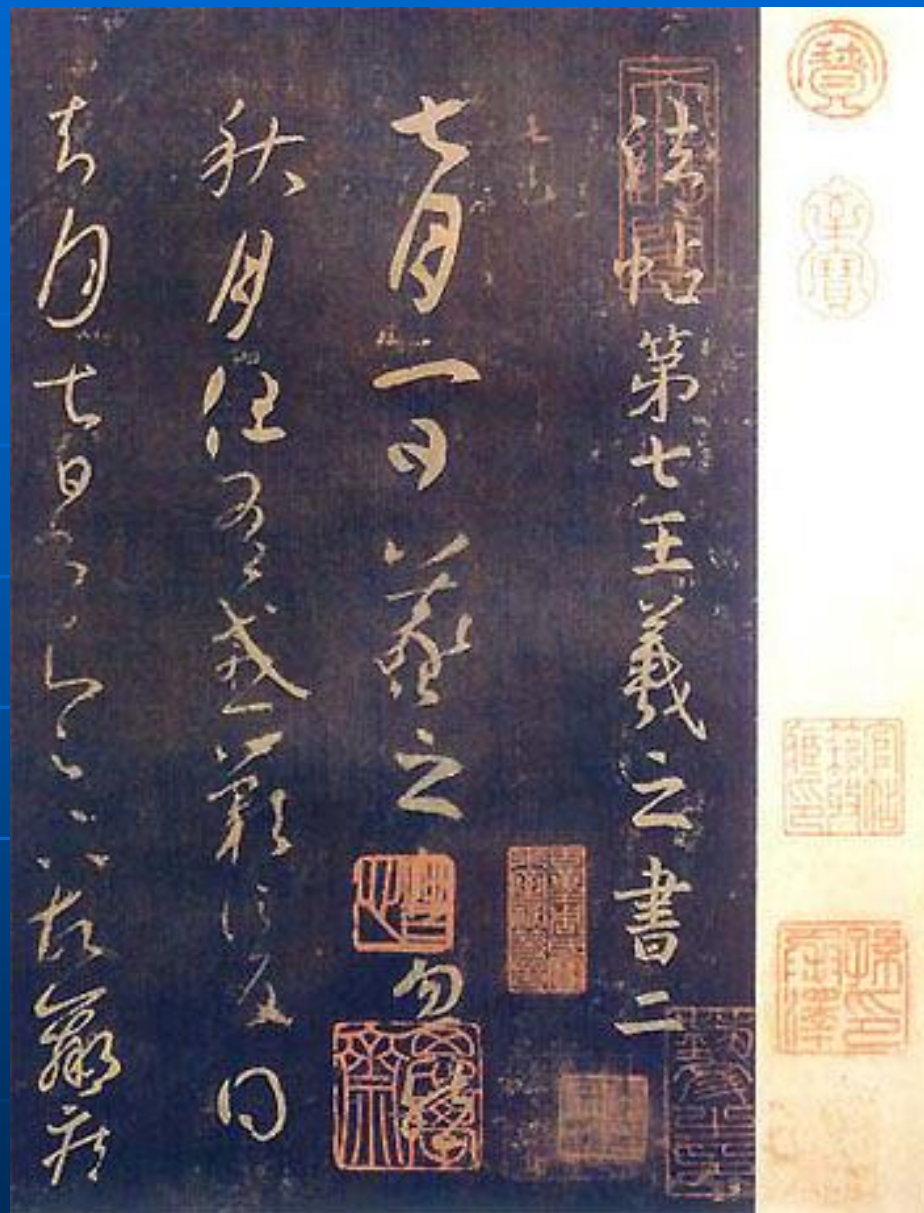 法帖第七王羲之書二
七月一日羲之白忽然
秋月但有感歎信反得
去月七日書知足下故羸疾